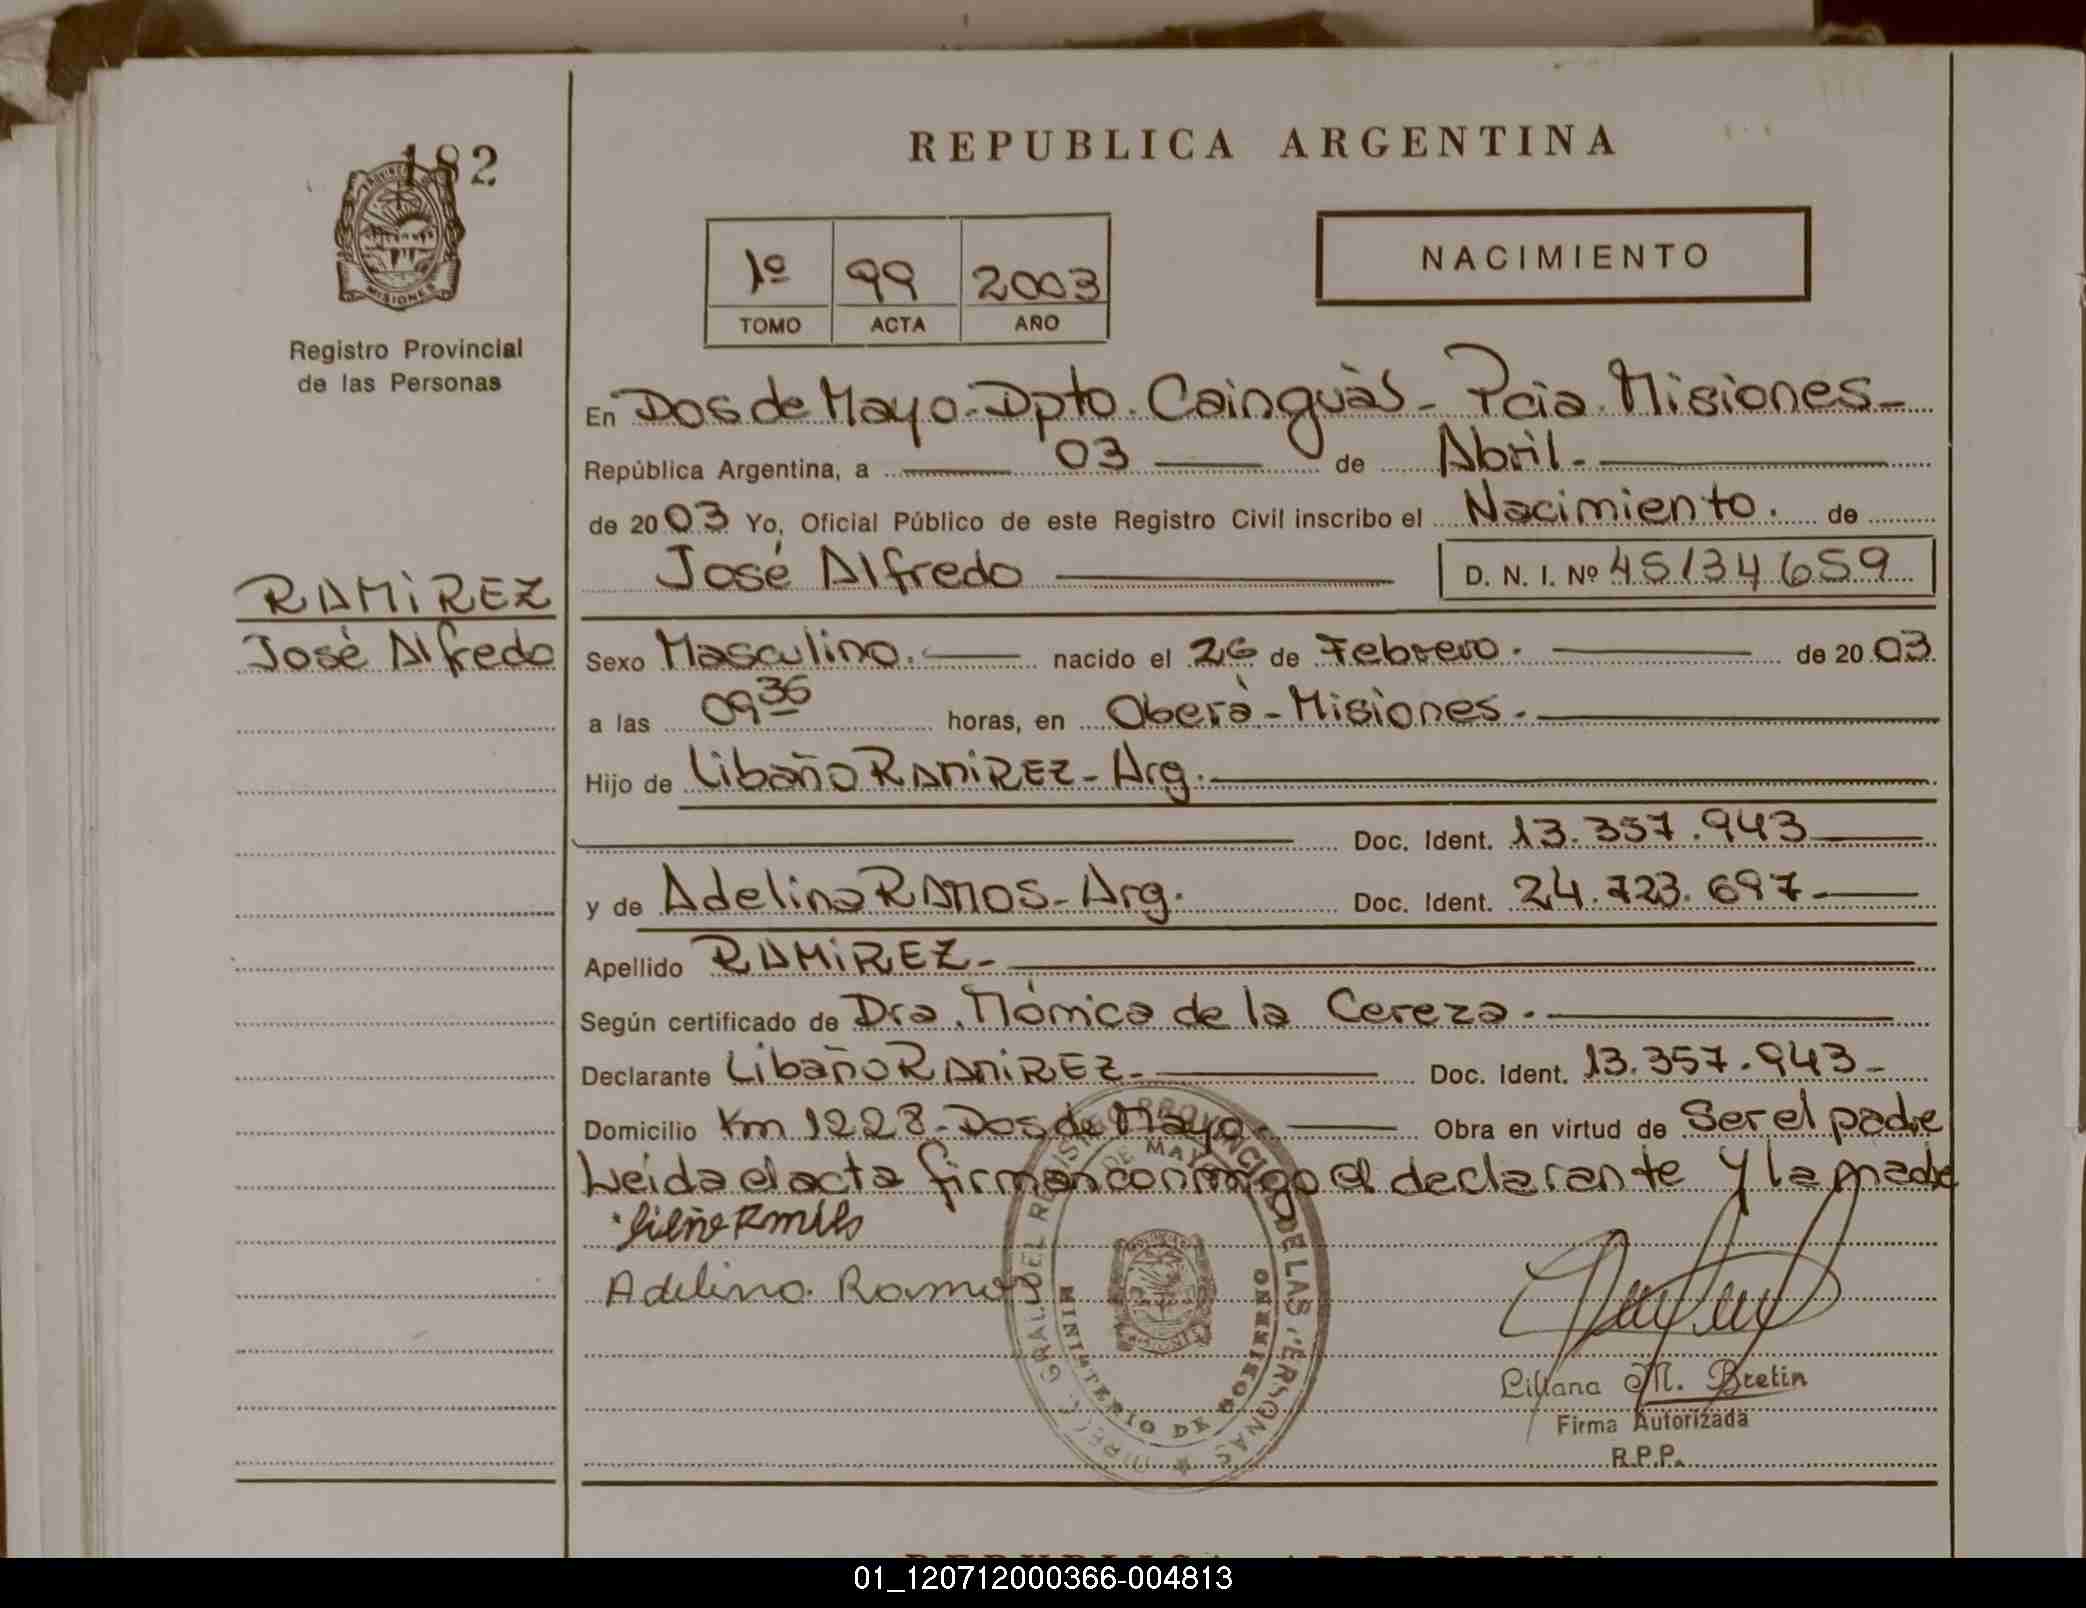 182
REPUBLICA ARGENTINA
NACIMIENTO
1º 99 2003
TOMO ACTA AÑO
MISIONES
Registro Provincial
de las Personas
En Dos de Mayo - Dpto. Cainguàs - Pcia. Misiones -
República Argentina, a 03 de Abril.
de 2003 Yo, Oficial Público de este Registro Civil inscribo el Nacimiento. de
José Alfredo D. N. I. Nº 45134659
RAMIREZ
José Alfredo
Sexo Masculino. nacido el 26 de Febrero. de 2003
a las 09 36 horas, en Oberà - Misiones.
Hijo de Libaño RAMIREZ - Arg.
Doc. Ident. 13.357.943
y de Adelina RAMOS - Arg. Doc. Ident. 24.723.697 -
Apellido RAMIREZ -
Según certificado de Dra. Mónica de la Cereza.
Declarante Libaño RAMIREZ - Doc. Ident. 13.357.943 -
Domicilio Km 1228 - Dos de Mayo - Obra en virtud de Ser el padre
Leida el acta firman conmigo el declarante y la madre
Adelina Ramos
MINISTERIO DE GOBIERNO
Liliana M. Bretin
Firma Autorizada
R.P.P.
01_120712000366-004813